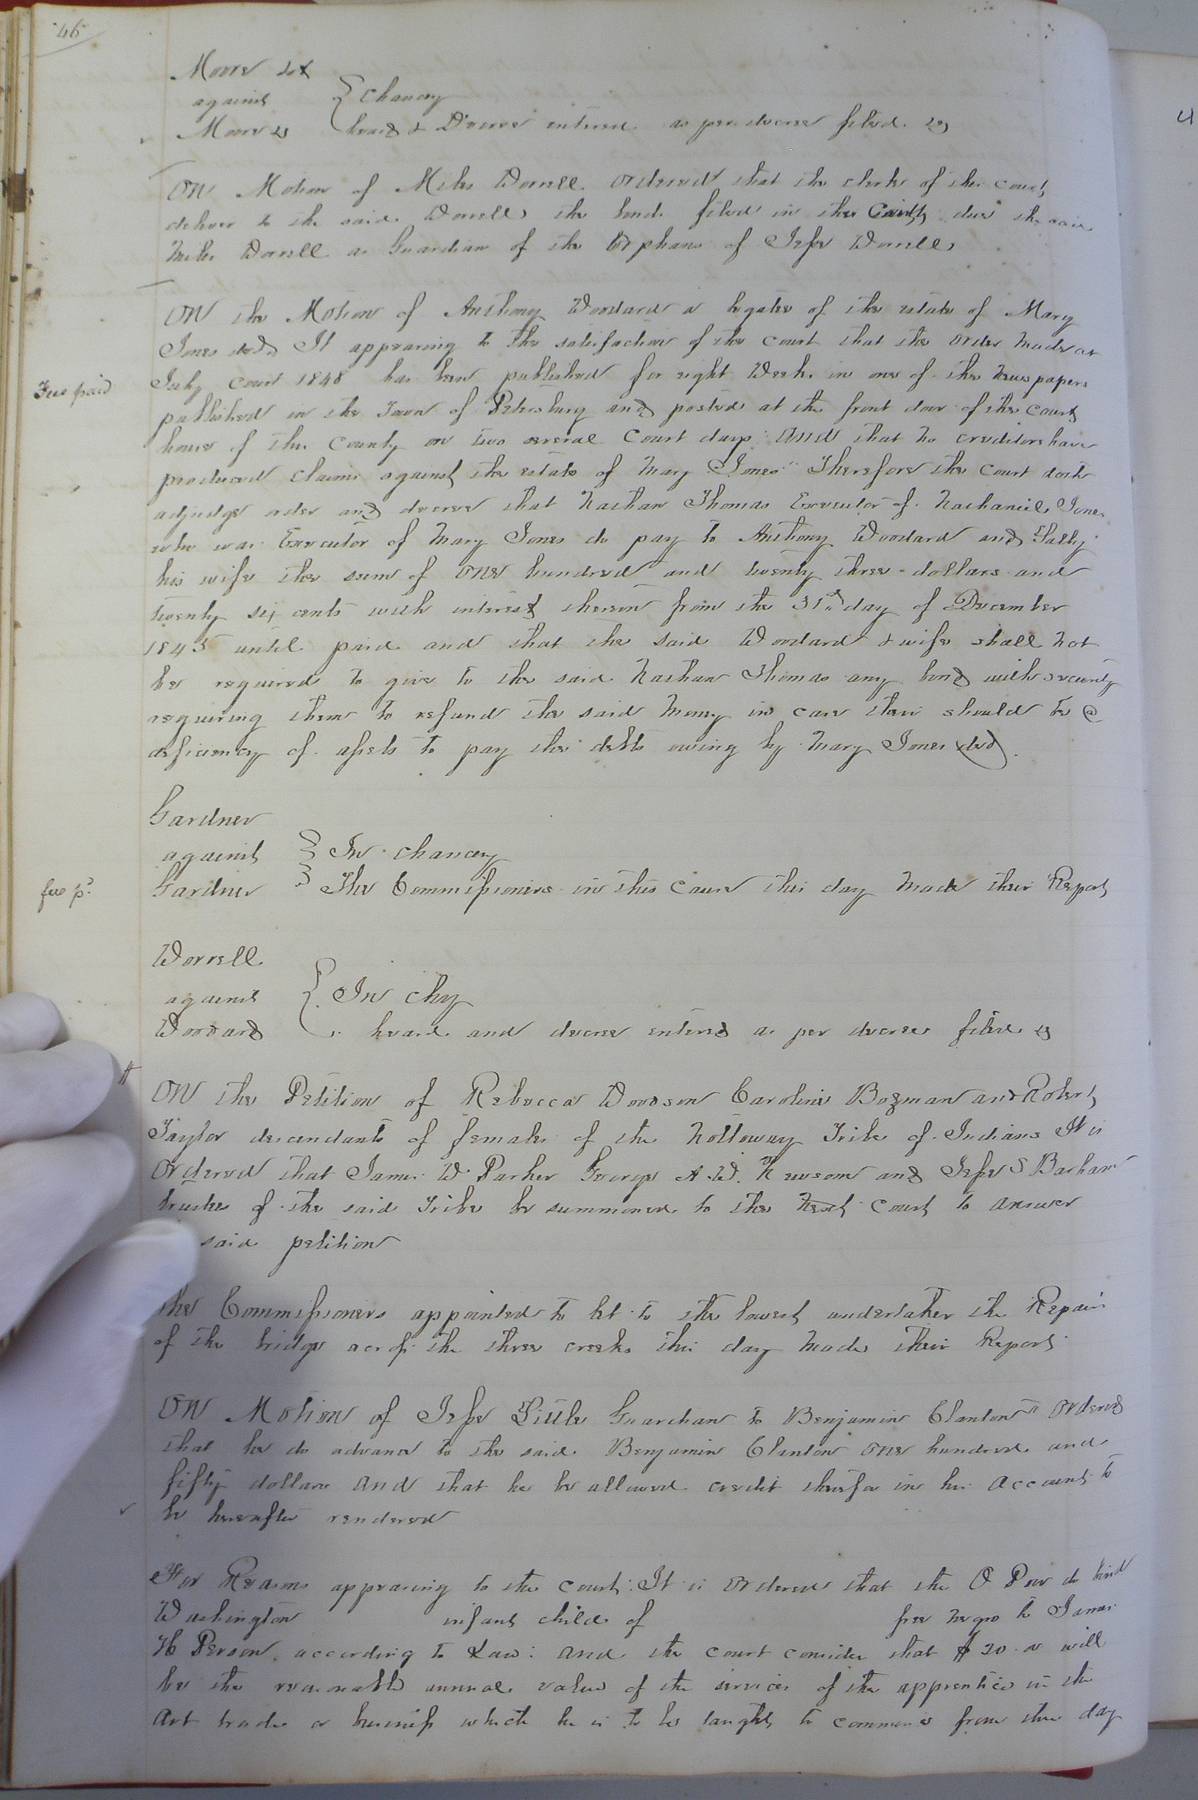 46
Moore &c
against } chancery
Moore &c heard & Decree entered as per decree filed &c
ON Motion of Miles Worrell Ordered that the clerk of this court
deliver to the said Worrell the bond filed in this County due the said
Miles Worrell as Guardian of the Orphans of Jesse Worrell
ON the Motion of Anthony Woodard a legatee of the estate of Mary
Jones decd It appearing to the satisfaction of the court that the order made at
Fee paid
July court 1848 has been published for eight Weeks in one of the newspapers
published in the Town of Petersburg and posted at the front door of the court
house of this County on two several Court days And that no creditors have
produced claims against the estate of Mary Jones" Therefore the court doth
adjudge order and decree that Nathan Thomas Executor of Nathaniel Jones
who was Executor of Mary Jones do pay to Anthony Woodard and Sally
his wife the sum of one hundred and twenty three dollars and
twenty six cents with interest thereon from the 31st day of December
1845 until paid and that the said Woodard & wife shall not
be required to give to the said Nathan Thomas any bond with security
requiring them to refund the said money in case their should be a
deficiency of assets to pay the debts owing by Mary Jones decd.
Gardner
against } In chancery
fee pd.
Gardner The Commissioners in this cause this day made their Report
Worrell
against } In chy
Woodard heard and decree entered as per decree filed &c
ON the Petition of Rebecca Woodson Caroline Bozman and Robert
Taylor descendants of females of the Nottoway Tribe of Indians It is
Ordered that James W Parker George A. W. Newsom and Jesse S Barham
trustees of the said Tribe be summoned to the Next court to answer
said petition
The Commissioners appointed to let to the lowest undertaker the Repairs
of the bridge across the three creeks this day made their Report
ON Motion of Jesse Little Guardian to Benjamin Clanton" Ordered
that he do advance to the said Benjamin Clanton one hundred and
fifty dollars And that he be allowed credit therefor in his Account to
be hereafter rendered
For Reasons appearing to the court. It is Ordered that the O Poor do bind
Washington infant child of free negro to James
H Person according to Law: and the court consider that $20 will
be the reasonable annual value of the services of the apprentice in the
Art trade or business which he is to be taught to commence from the day